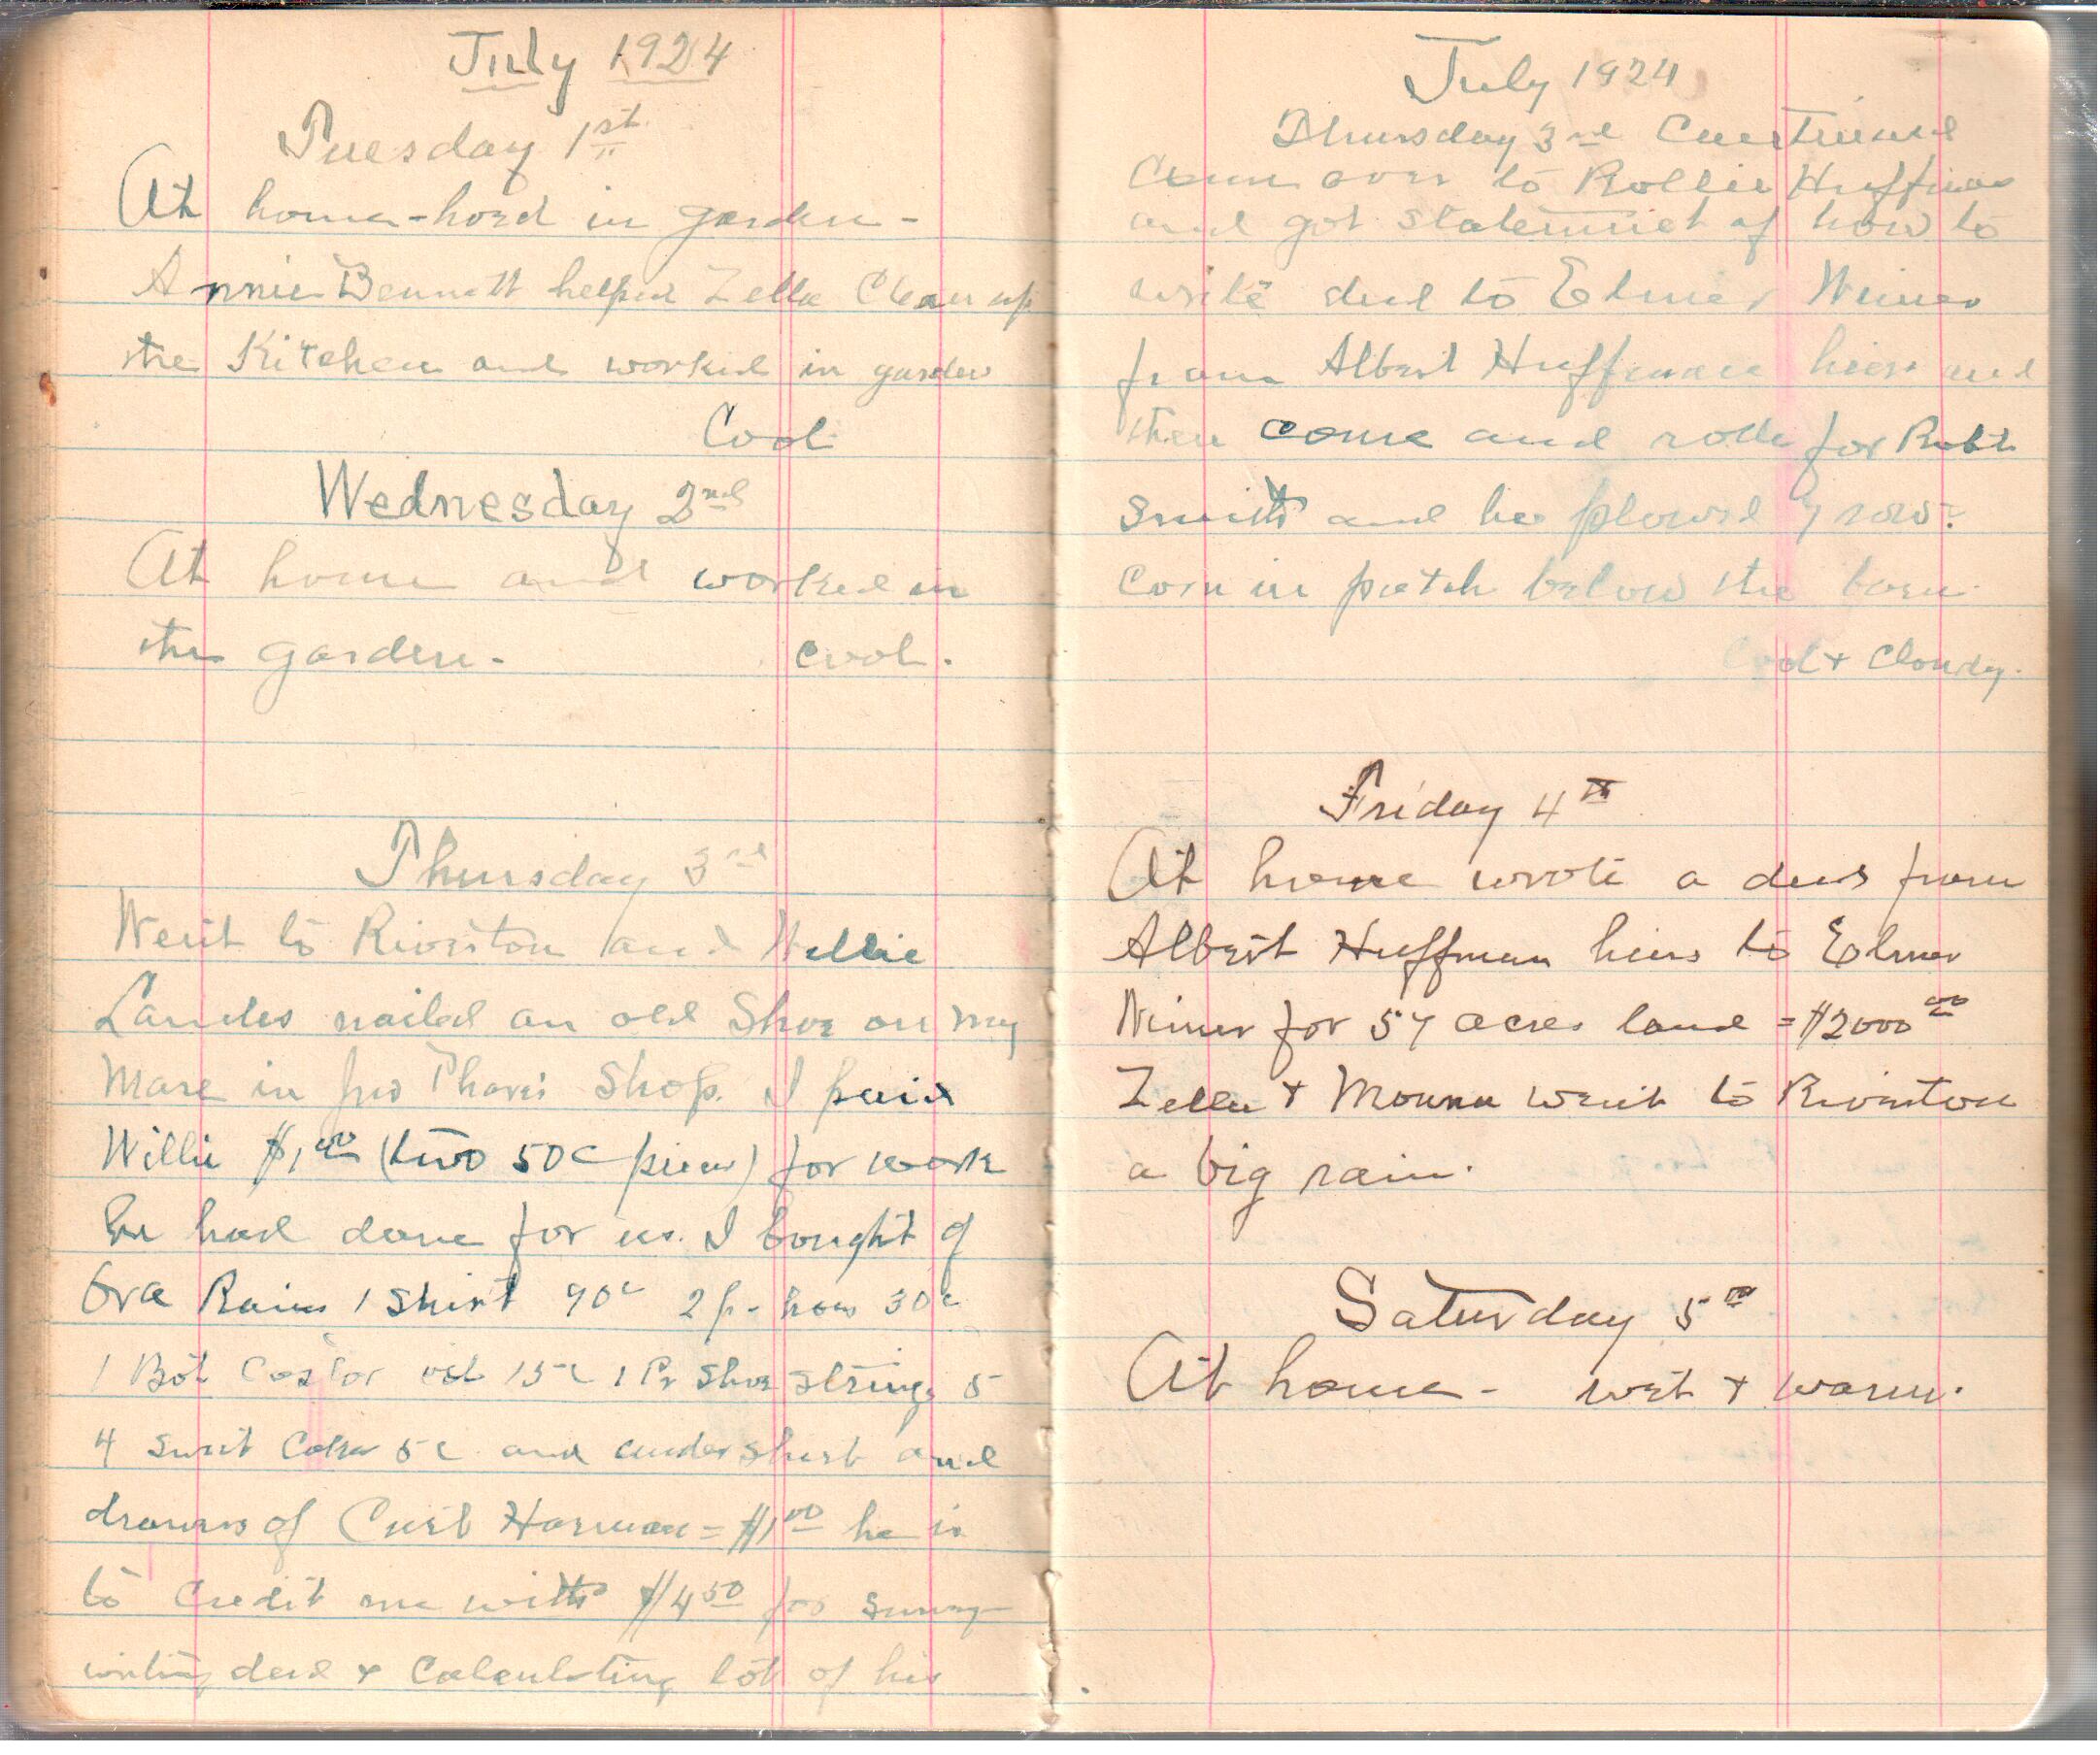 July 1924
Tuesday 1st
At home - hoed in garden -
Annie Bennett helped Zella Clean up
the Kitchen and worked in garden
Cool
Wednesday 2nd
At home and worked in
the garden - cool.
Thursday 3rd
Went to Riverton and Willie
Landes nailed an old Shoe on my
Mare in Shop. I paid
Willie $1.00 (two 50c pieces) for work
he had done for us. I bought of
Ora Rains 1 Shirt 90c 2 p- hose 30c
1 Bot Castor oil 15c 1 Pr Shoe strings 5
4 sweet Cakes 5c and under shirt and
drawers of Curt Harman = $1.00 he is
to credit me with $4.50 for survey
writing deed & Calculating lot of his
July 1924
Thursday 3rd Continued
Came over to Rollie Huffman
and got statement of how to
write deed to Elmer Nimer
from Albert Huffman heirs and
then come and rode for Robt
Smith and he plowed 7 rows
Corn in patch below the barn.
Cool & Cloudy.
Friday 4th
At home wrote a deed from
Albert Huffman heirs to Elmer
Nimer for 57 acres land = $2000.00
Zella & Mouna went to Riverton
a big rain.
Saturday 5th
At home - wet & warm.